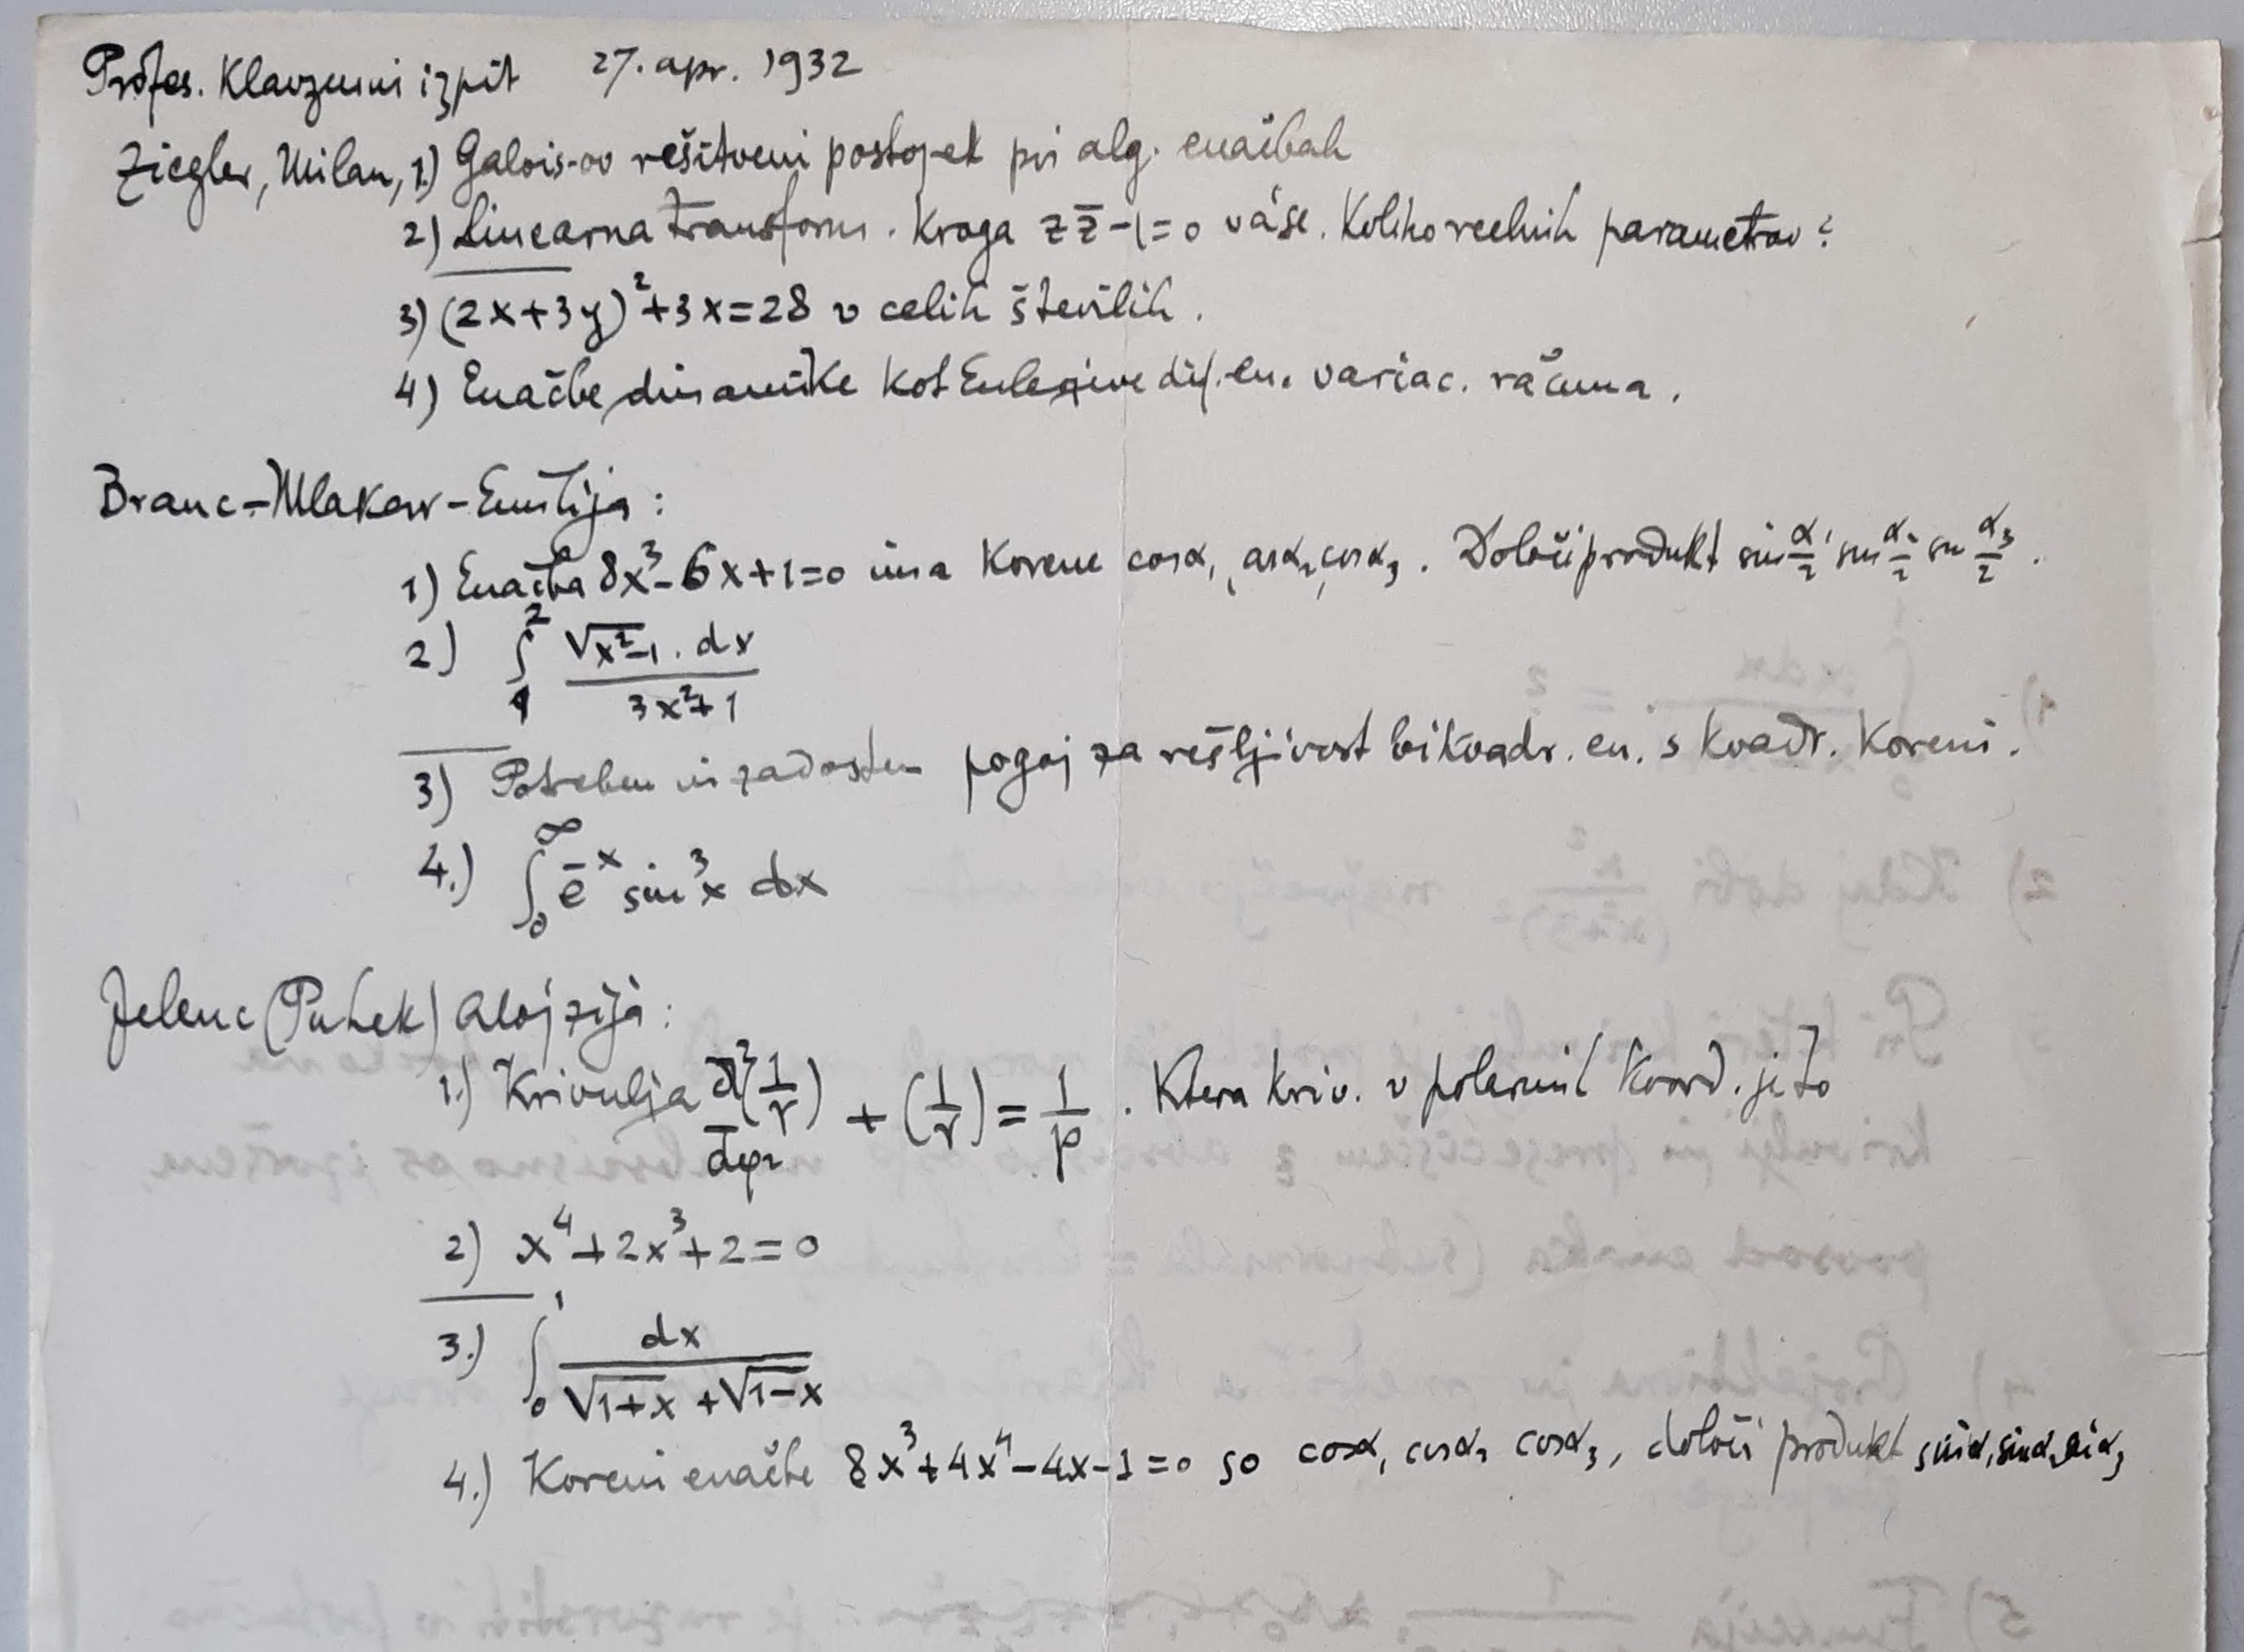 Profes. Klavzurni izpit 27. apr. 1932
Ziegler, Milan, 1) Galois-ov rešitveni postopek pri alg. enačbah
2) Linearna transform. kroga z z̄ - 1 = 0 vase. Koliko reelnih parametrov?
3) (2x+3y)² + 3x = 28 v celih številih.
4) Enačbe dinamike kot Eulerjeve dif. en. variac. računa.
Branc-Mlakar-Emilija:
1) Enačba 8x³ - 6x + 1 = 0 ima korene cosα₁, cosα₂, cosα₃. Določi produkt sin α₁/2 sin α₂/2 sin α₃/2.
2) ∫₁² √x²-1 . dx / 3x²+1
3) Potreben in zadosten pogoj za rešljivost bikvadr. en. s kvadr. koreni.
4.) ∫₀^∞ e^-x sin³x dx
Jelenc (Puhek) Alojzija:
1.) Krivulja d²(1/r)/dφ² + (1/r) = 1/p. Ktera kriv. v polarnih koord. je to
2) x⁴ + 2x³ + 2 = 0
3.) ∫₀¹ dx / √1+x + √1-x
4.) Koreni enačbe 8x³ + 4x⁴ - 4x - 1 = 0 so cosα₁ cosα₂ cosα₃, določi produkt sinα₁ sinα₂ sinα₃